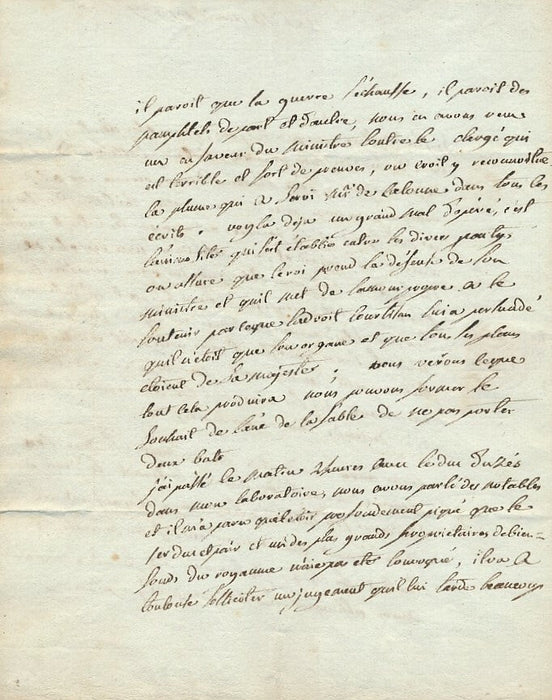 il paroit que la guerre s'échauffe, il paroit des
pamphlets de part et d'autre, nous en avons vu
un en faveur du ministre contre le clergé qui
est terrible et fort de preuves, on croit y reconnoitre
la plume qui a servi Mr de Calonne dans tous ses
écrits. voyla deja un grand mal d'opéré, c'est
l'animosité qui s'est etablie entre les divers partys
on assure que le roi prend la défense de son
ministre et quil met de l'amour propre a le
soutenir parceque ladroit courtisan lui a persuadé
quil n'etoit que son organe et que tous ses plans
etoient de sa majesté. nous verons ce que
tout cela produira nous pouvons former le
souhait de l'ane de la fable de ne pas porter
deux bats
j'ai passé le matin 2 heures avec le duc Duzés
dans mon laboratoire, nous avons parlé des notables
et il m'a paru quil etoit profondement piqué que le
1er duc et pair et un des plus grands proprietaires de bien=
fonds du royaume n'aie pas eté convoqué, il va a
toulouse solliciter un jugement quil lui tarde beaucoup